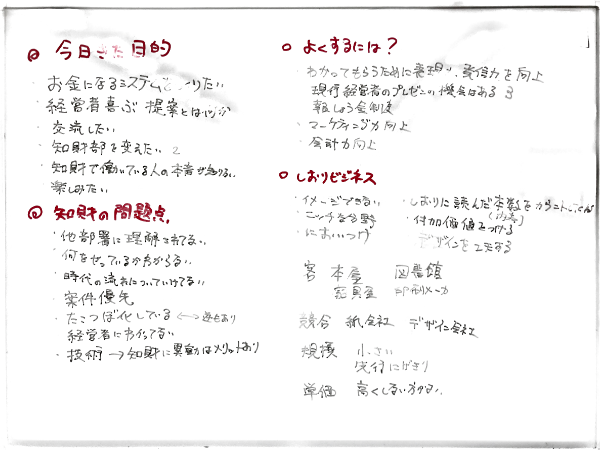 今日きた目的
・お金になるシステムをしりたい
・経営者喜ぶ提案とは何か
・交流したい
・知財部を変えたい 2
・知財で働いている人の本音が知りたい
楽しみたい
知財の問題点
・他部署に理解されてない
・何をやっているかわからない
・時代の流れについていけてない
・案件優先
・たこつぼ化している ←→ 逆もあり
経営者に
・技術→知財に異動はメリットあり
よくするには?
・わかってもらうために表現力、発信力を向上
現行経営者のプレゼンの機会はある 3
報しょう金制度
・マーケティング力向上
・会計力向上
しおりビジネス
・イメージできない
・ニッチな分野
・においつけ
・しおりに読んだ本数をカウント
・付加価値をつける
デザインを工夫する
客 本屋 図書館
家具屋 印刷メーカ
競合 紙会社 デザイン会社
規模 小さい
先行にがきり
単価 高くしない方がよい